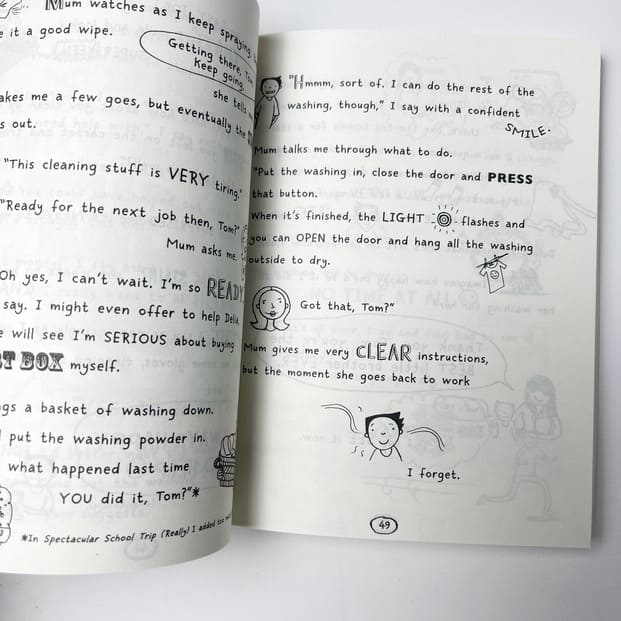 Mum watches as I keep spraying
it a good wipe.
Getting there, Tom
Keep going.
she tells
me a few goes, but eventually the
out.
"This cleaning stuff is VERY tiring."
"Ready for the next job then, Tom?"
Mum asks me.
Oh yes, I can't wait. I'm so READY
say. I might even offer to help Delia,
will see I'm SERIOUS about buying
BOX myself.
a basket of washing down.
put the washing powder in.
what happened last time
YOU did it, Tom?"*
*In Spectacular School Trip (Really) I added too
"Hmmm, sort of. I can do the rest of the
washing, though," I say with a confident
SMILE.
Mum talks me through what to do.
"Put the washing in, close the door and PRESS
that button.
When it's finished, the LIGHT flashes and
you can OPEN the door and hang all the washing
outside to dry.
Got that, Tom?"
Mum gives me very CLEAR instructions,
but the moment she goes back to work
I forget.
49